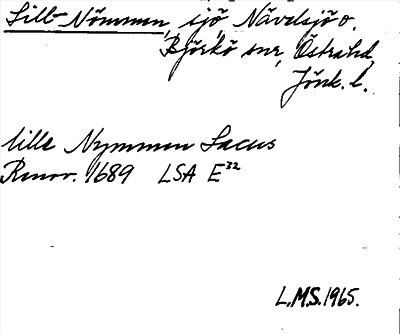 Lill-Nömmen, sjö, Nävelsjö o.
Björkö snr, Östra hd,
Jönk. l.
lille Nymmen Lacus
Renov. 1689 LSA E³²
L.M.S. 1965.